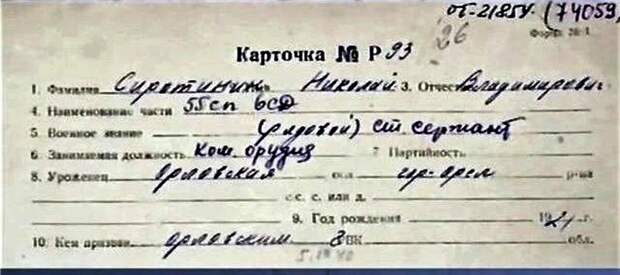 от-21854. (74059,
26
Форма № 1
Карточка № Р 93
1. Фамилия Сиротинин Николай 3. Отчество Владимирович
4. Наименование части 55сп 6сд
5. Военное звание (рядовой) ст. сержант
6. Занимаемая должность Ком. орудия 7 Партийность
8. Уроженец Орловская обл. гор-орел р-на
с.с. с. или д.
9. Год рождения 1921 г.
10. Кем призван Орловским ВК обл.